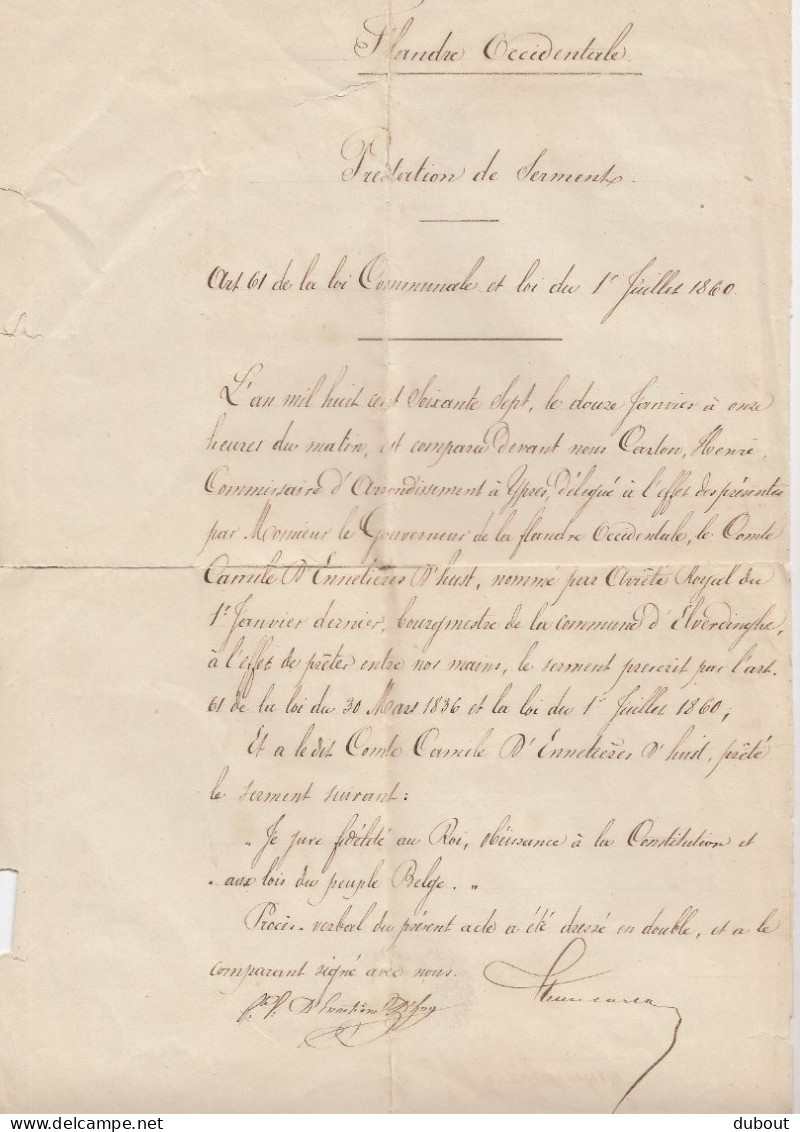 Flandre Occidentale.
Prestation de Serment.
Art 61 de la loi Communale et loi du 1er Juillet 1860.
L'an mil huit cent Soixante Sept, le douze Janvier à onze
heures du matin, est comparu devant nous Carton, Henri,
Commissaire d'Arrondissement à Ypres, délégué à l'effet des présentes
par Monsieur le Gouverneur de la flandre Occidentale, le Comte
Camile D'Ennetières D'hust, nommé par Arrêté Royal du
1er Janvier dernier, bourgmestre de la commune d'Elverdinghe,
à l'effet de prêter entre nos mains, le serment prescrit par l'art.
61 de la loi du 30 Mars 1836 et la loi du 1er Juillet 1860;
Et a le dit Comte Camile D'Ennetières D'hust, prêté
le serment suivant:
„ Je jure fidélité au Roi, obéissance à la Constitution et
„ aux lois du peuple Belge. „
Procès-verbal du présent acte a été dressé en double, et a le
comparant signé avec nous.
dubout